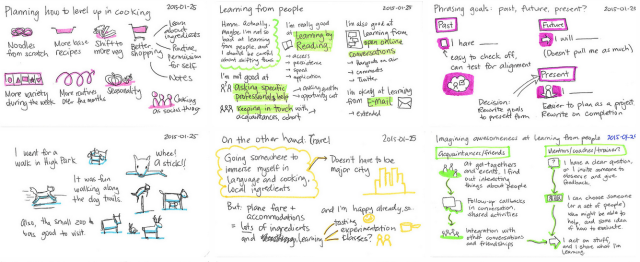 Planning how to level up in cooking
2015-01-25
Noodles
from scratch
More basic
recipes
Shift to
more veg
Better
shopping
Learn
about
ingredients
Routine,
permission
for self
Notes
More variety
during the week
More routines
over the months
Seasonality
Cooking
as social thing
Learning from people
2015-01-25
Hmm. Actually,
maybe I'm not so
bad at learning
from people, and
I should be careful
about shifting this
I'm really good
at
Learning by
Reading.
access
persistence
speed
application
I'm also good at
Learning from
open online
conversations
Hangouts on air
comments
Twitter
I'm not good at
asking specific
professional help
Keeping in touch with
acquaintances, cohort
asking questions
opportunity cost
I'm okay at learning
from
E-mail
extended
Phrasing goals: past, future, present?
2015-01-25
Past
I have
easy to check off,
can test for alignment
Future
I will
(Doesn't pull me as much)
Present
I
Decision:
Rewrite goals
to present form
Easier to plan as a project
Rewrite on completion
2015-01-25
I went for a
walk in High Park
whee!
A stick!!
It was fun
walking along
the dog trails.
Also, the small zoo
was good to visit.
On the other hand: Travel
2015-01-25
Going somewhere to
immerse myself in
Language and cooking,
Local ingredients
Doesn't have to be
major city
But plane fare +
accommodations
= lots of ingredients
and learning
and I'm happy already, so...
tasting
experimentation
classes?
Imagining awesomeness at learning from people
2015-01-25
Acquaintances/friends
at get-togethers
and events, I find
out interesting
things about people
Follow-up callbacks
in conversation,
shared activities
Integration with
other conversations
and friendships
Mentors/coaches/trainers
I have a clear question,
or I invite someone to
observe and give
feedback.
I can choose someone
(or a set of people)
who might be able to
help, and some idea
of how to evaluate
I act on stuff,
and I share what I'm
learning.